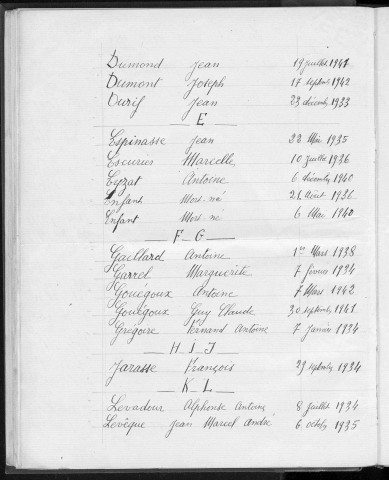 Dumond Jean 19 juillet 1941
Dumont Joseph 17 septemb 1942
Durif Jean 23 décemb 1933
E
Espinasse Jean 22 Mai 1935
Escuries Marcelle 10 juillet 1936
Eyzat Antoine 6 décemb 1940
Enfant Mort-né 21 Août 1936
Enfant Mort-né 6 Mai 1940
F_G
Gaillard Antoine 1er Mars 1938
Garrel Marguerite 7 février 1934
Gouégoux Antoine 7 Mars 1942
Gouégoux Guy Claude 30 septemb 1941
Grégoire Fernand Antoine 7 Janvier 1934
H I J
Jarasse François 29 septemb 1934
K L
Levadour Alphonse Antoine 8 juillet 1934
Levêque Jean Marcel André 6 octob 1935